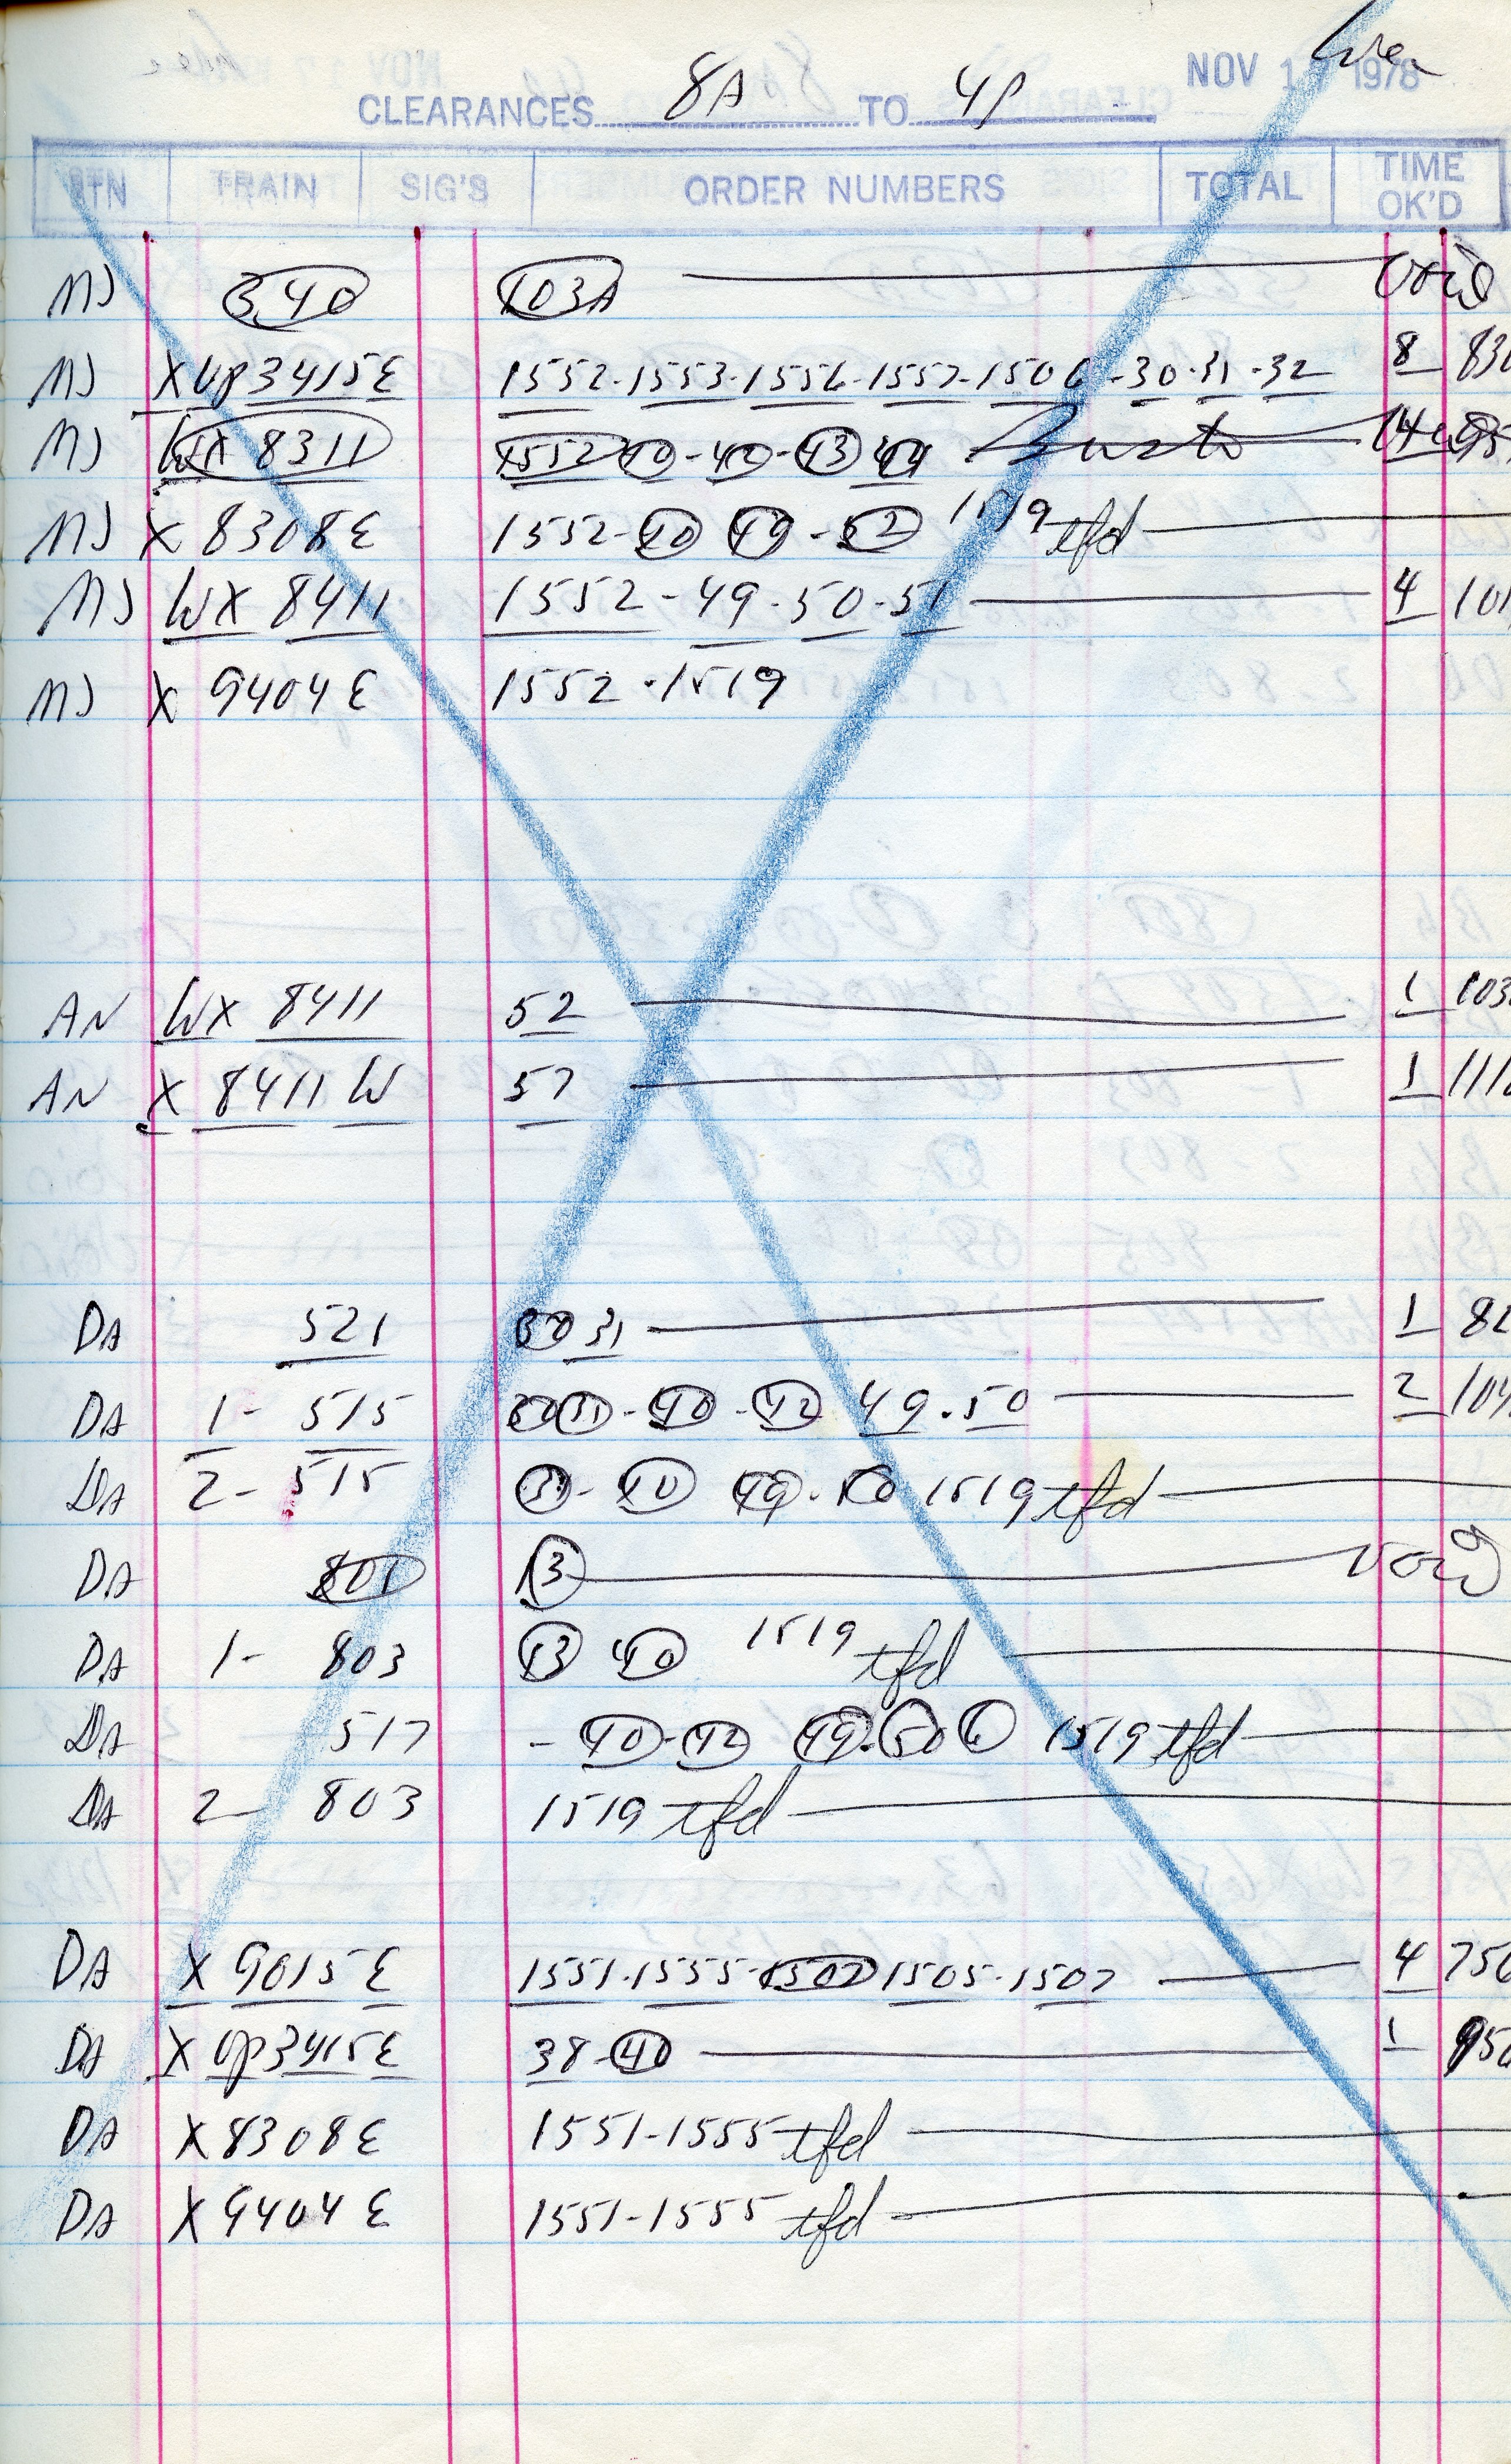 CLEARANCES 8A TO 4P NOV 1 1978
STN TRAIN SIG'S ORDER NUMBERS TOTAL TIME OK'D
MJ 340 103A void
MJ X UP3415E 1552-1553-1556-1557-1506-30-31-32 8 83
MJ WX 8311 1552 40-42-43 44 Busto
MJ X 8308E 1552-40 49-52 1519 tfd
MJ WX 8411 1552-49-50-51 4 101
MJ X 9404E 1552-1519
AN WX 8411 52 1 103
AN X 8411 W 57 1 111
DA 521 30 31 1 82
DA 1- 515 30 31-40-42 49-50 2 104
DA 2- 515 31-40 49-50 1519 tfd
DA 801 13 void
DA 1- 803 43 40 1519 tfd
DA 517 -40-42 49-50 1519 tfd
DA 2- 803 1519 tfd
DA X 9015E 1551-1555-1502 1505-1507 4 750
DA X UP3415E 38-40 1 950
DA X8308E 1551-1555 tfd
DA X9404E 1551-1555 tfd